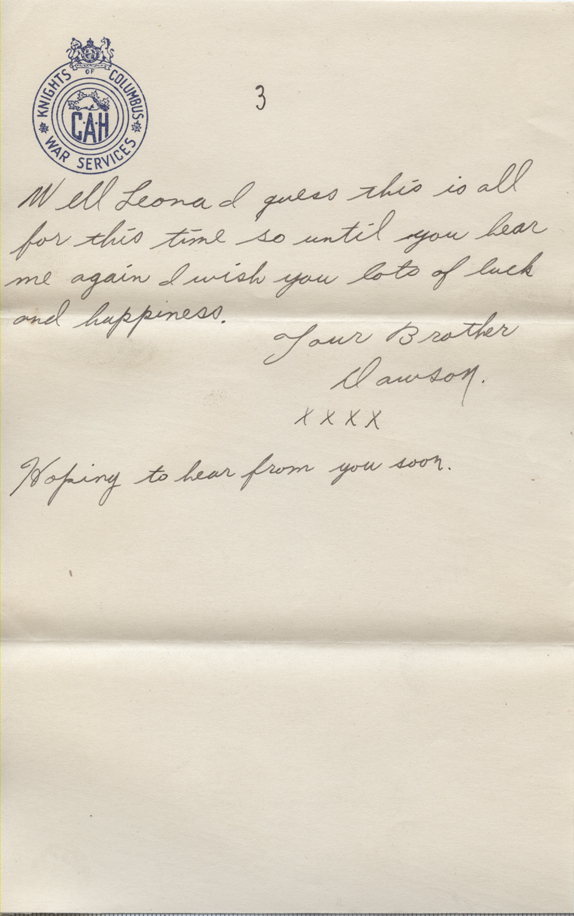 KNIGHTS OF COLUMBUS
C·A·H
WAR SERVICES
3
Well Leona I guess this is all
for this time so until you hear
me again I wish you lots of luck
and happiness.
Your Brother
Dawson.
xxxx
Hoping to hear from you soon.